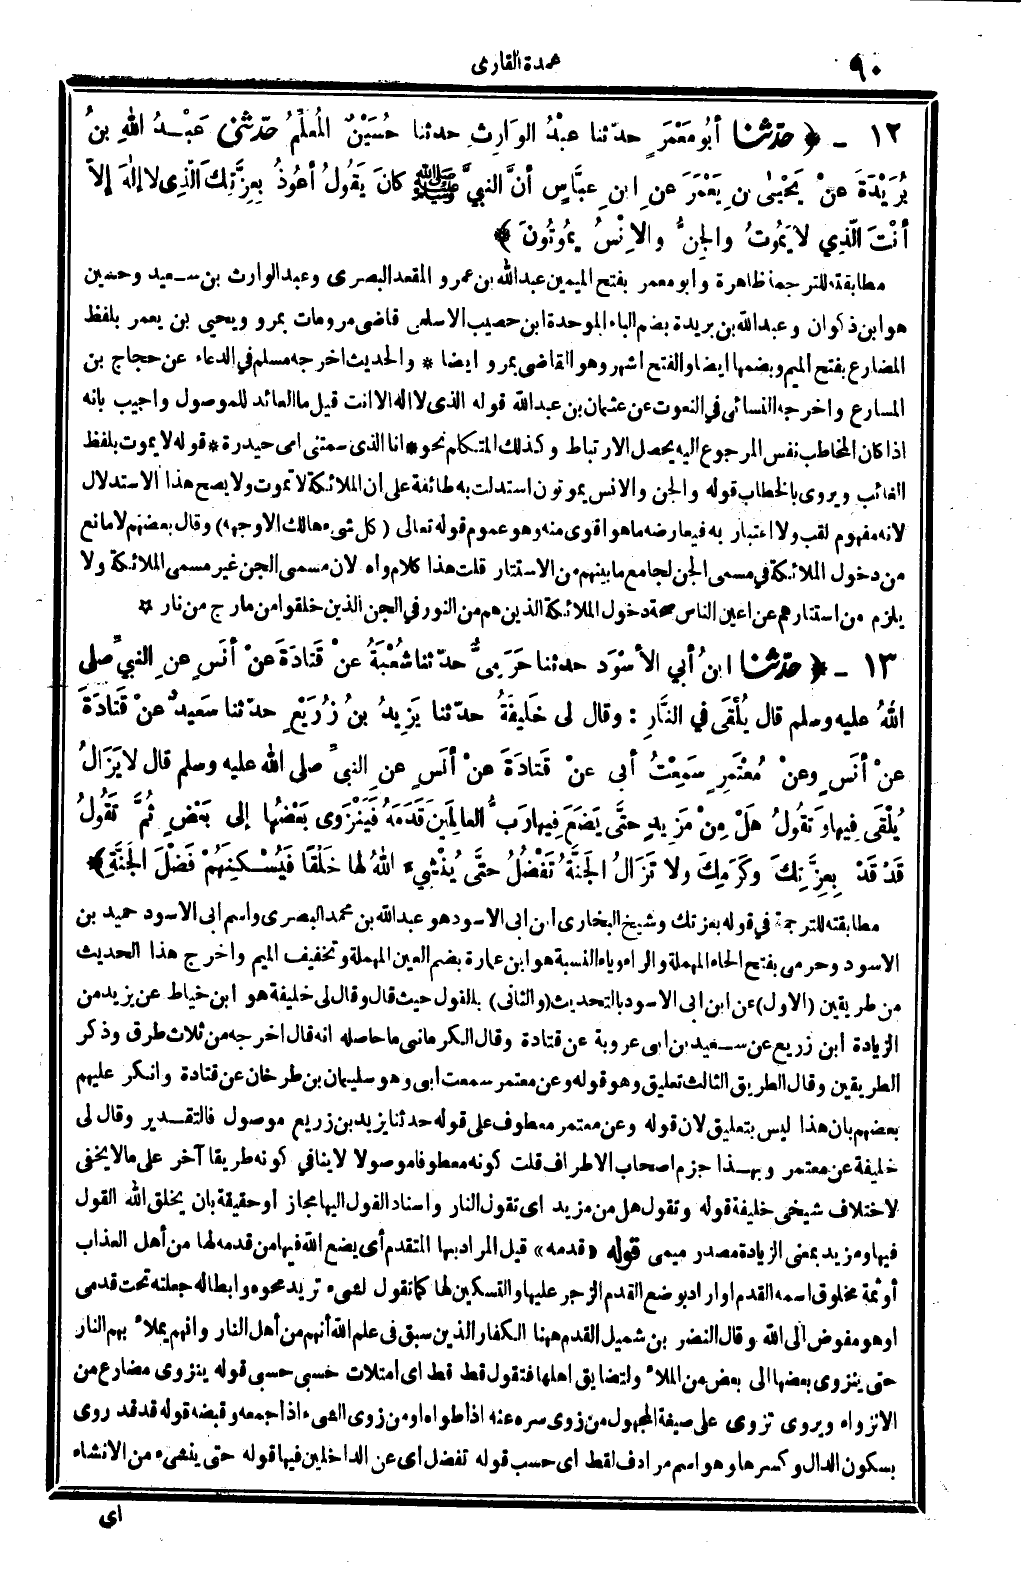 ٩٠
عمدة القارى
١٢ ـ ﴿ حدّثنا أبُو مَعْمَرٍ حدّثنا عبْدُ الوارِثِ حدثنا حُسَيْنٌ المُعلِّمُ حدّثني عَبْـدُ اللهِ بنُ
بُرَيْدَةَ عَنْ يَحْيىٰ بنِ يَعْمَرَ عن ابنِ عبَّاسٍ أنَّ النبيَّ ﷺ كانَ يَقُولُ أعُوذُ بِعِزَّتِكَ الَّذِى لا إلٰهَ إلاَّ
أنْتَ الّذِي لا يَمُوتُ والجِنُّ والإنْسُ يَمُوتُونَ ﴾
مطابقته للترجمة ظاهرة وابو معمر بفتح الميمين عبدالله بن عمرو المقعد البصرى وعبدالوارث بن سـعيد وحسين
هو ابن ذكوان وعبدالله بن بريدة بضم الباء الموحدة ابن حصيب الاسلمى قاضى مرو مات بمرو ويحيى بن يعمر بلفظ
المضارع بفتح الميم وبضمها ايضا والفتح اشهر وهو القاضى بمرو ايضا * والحديث اخرجه مسلم فى الدعاء عن حجاج بن
المسارع واخرجه النسائى فى النعوت عن عثمان بن عبدالله قوله الذى لا اله الا انت قيل ما العائد للموصول واجيب بانه
اذا كان المخاطب نفس المرجوع اليه يحصل الارتباط وكذلك المتكلم نحو * انا الذى سمتنى امى حيدرة * قوله لا يموت بلفظ
الغائب ويروى بالخطاب قوله والجن والانس يموتون استدلت به طائفة على ان الملائكة لا تموت ولا يصح هذا الاستدلال
لانه مفهوم لقب ولا اعتبار به فيعارضه ما هو اقوى منه وهو عموم قوله تعالى (كل شىء هالك الا وجهه) وقال بعضهم لا مانع
من دخول الملائكة فى مسمى الجن لجامع ما بينهم من الاستتار قلت هذا كلام واه لان مسمى الجن غير مسمى الملائكة ولا
يلزم من استتارهم عن اعين الناس صحة دخول الملائكة الذين هم من النور فى الجن الذين خلقوا من مارج من نار ☆
١٣ ـ ﴿ حدّثنا ابنُ أبي الأسْوَدِ حدثنا حَرَمِىٌّ حدّثنا شُعْبَةُ عنْ قَتادَةَ عنْ أنَسٍ عنِ النبيِّ صلى
اللهُ عليه وسلم قال يُلْقَى في النَّارِ : وقال لى خَلِيفَةُ حدّثنا يَزِيدُ بنُ زُرَيْعٍ حدّثنا سَعِيدٌ عنْ قَتادَةَ
عنْ أنَسٍ وعنْ مُعْتَمِرٍ سَمِعْتُ أبى عنْ قَتادَةَ عنْ أنَسٍ عنِ النبيِّ صلى الله عليه وسلم قال لا يَزَالُ
يُلْقَى فِيها وتَقُولُ هَلْ مِنْ مَزِيدٍ حتَّى يَضَعَ فِيها رَبُّ العالَمِينَ قَدَمَهُ فَيَنْزَوِى بَعْضُها إلى بَعْضٍ ثُمَّ تَقُولُ
قَدْ قَدْ بِعِزَّتِكَ وكَرَمِكَ ولا تَزَالُ الجَنَّةُ تَفْضُلُ حتَّى يُنْشِىءَ اللهُ لها خَلْقًا فَيُسْكِنَهُمْ فَضْلَ الجَنَّةِ ﴾
مطابقته للترجمة فى قوله بعزتك وشيخ البخارى ابن ابى الاسود هو عبدالله بن محمد البصرى واسم ابى الاسود حميد بن
الاسود وحرمى بفتح الحاء المهملة والراء وياء النسبة هو ابن عمارة بضم العين المهملة وتخفيف الميم واخرج هذا الحديث
من طريقين (الاول) عن ابن ابى الاسود بالتحديث (والثانى) بالقول حيث قال وقال لى خليفة هو ابن خياط عن يزيد من
الزيادة ابن زريع عن سـعيد بن ابى عروبة عن قتادة وقال الكرمانى ما حاصله انه قال اخرجه من ثلاث طرق وذكر
الطريقين وقال الطريق الثالث تعليق وهو قوله وعن معتمر سمعت ابى وهو سليمان بن طرخان عن قتادة وانكر عليهم
بعضهم بان هذا ليس بتعليق لان قوله وعن معتمر معطوف على قوله حدثنا يزيد بن زريع موصول فالتقـدير وقال لى
خليفة عن معتمر وبهـذا جزم اصحاب الاطراف قلت كونه معطوفا موصولا لا ينافى كونه طريقا آخر على ما لا يخفى
لاختلاف شيخى خليفة قوله وتقول هل من مزيد اى تقول النار واسناد القول اليها مجاز أو حقيقة بان يخلق الله القول
فيها ومزيد بمعنى الزيادة مصدر ميمى قوله «قدمه» قيل المراد بها المتقدم أى يضع الله فيها من قدمه لها من أهل العذاب
أو ثمة مخلوق اسمه القدم او اراد بوضع القدم الزجر عليها والتسكين لها كما تقول لشىء تريد محوه وابطاله جعلته تحت قدمى
او هو مفوض الى الله وقال النضر بن شميل القدم ههنا الكفار الذين سبق فى علم الله أنهم من أهل النار وانهم يملأ بهم النار
حتى ينزوى بعضها الى بعض من الملأ ولتضايق اهلها فتقول قط قط اى امتلات حسبى حسبى قوله ينزوى مضارع من
الانزواء ويروى تزوى على صيغة المجهول من زوى سره عنه اذا طواه او من زوى الشىء اذا جمعه وقبضه قوله قد قد روى
بسكون الدال وكسرها وهو اسم مرادف لقط اى حسب قوله تفضل أى عن الداخلين فيها قوله حتى ينشىء من الانشاء
اى